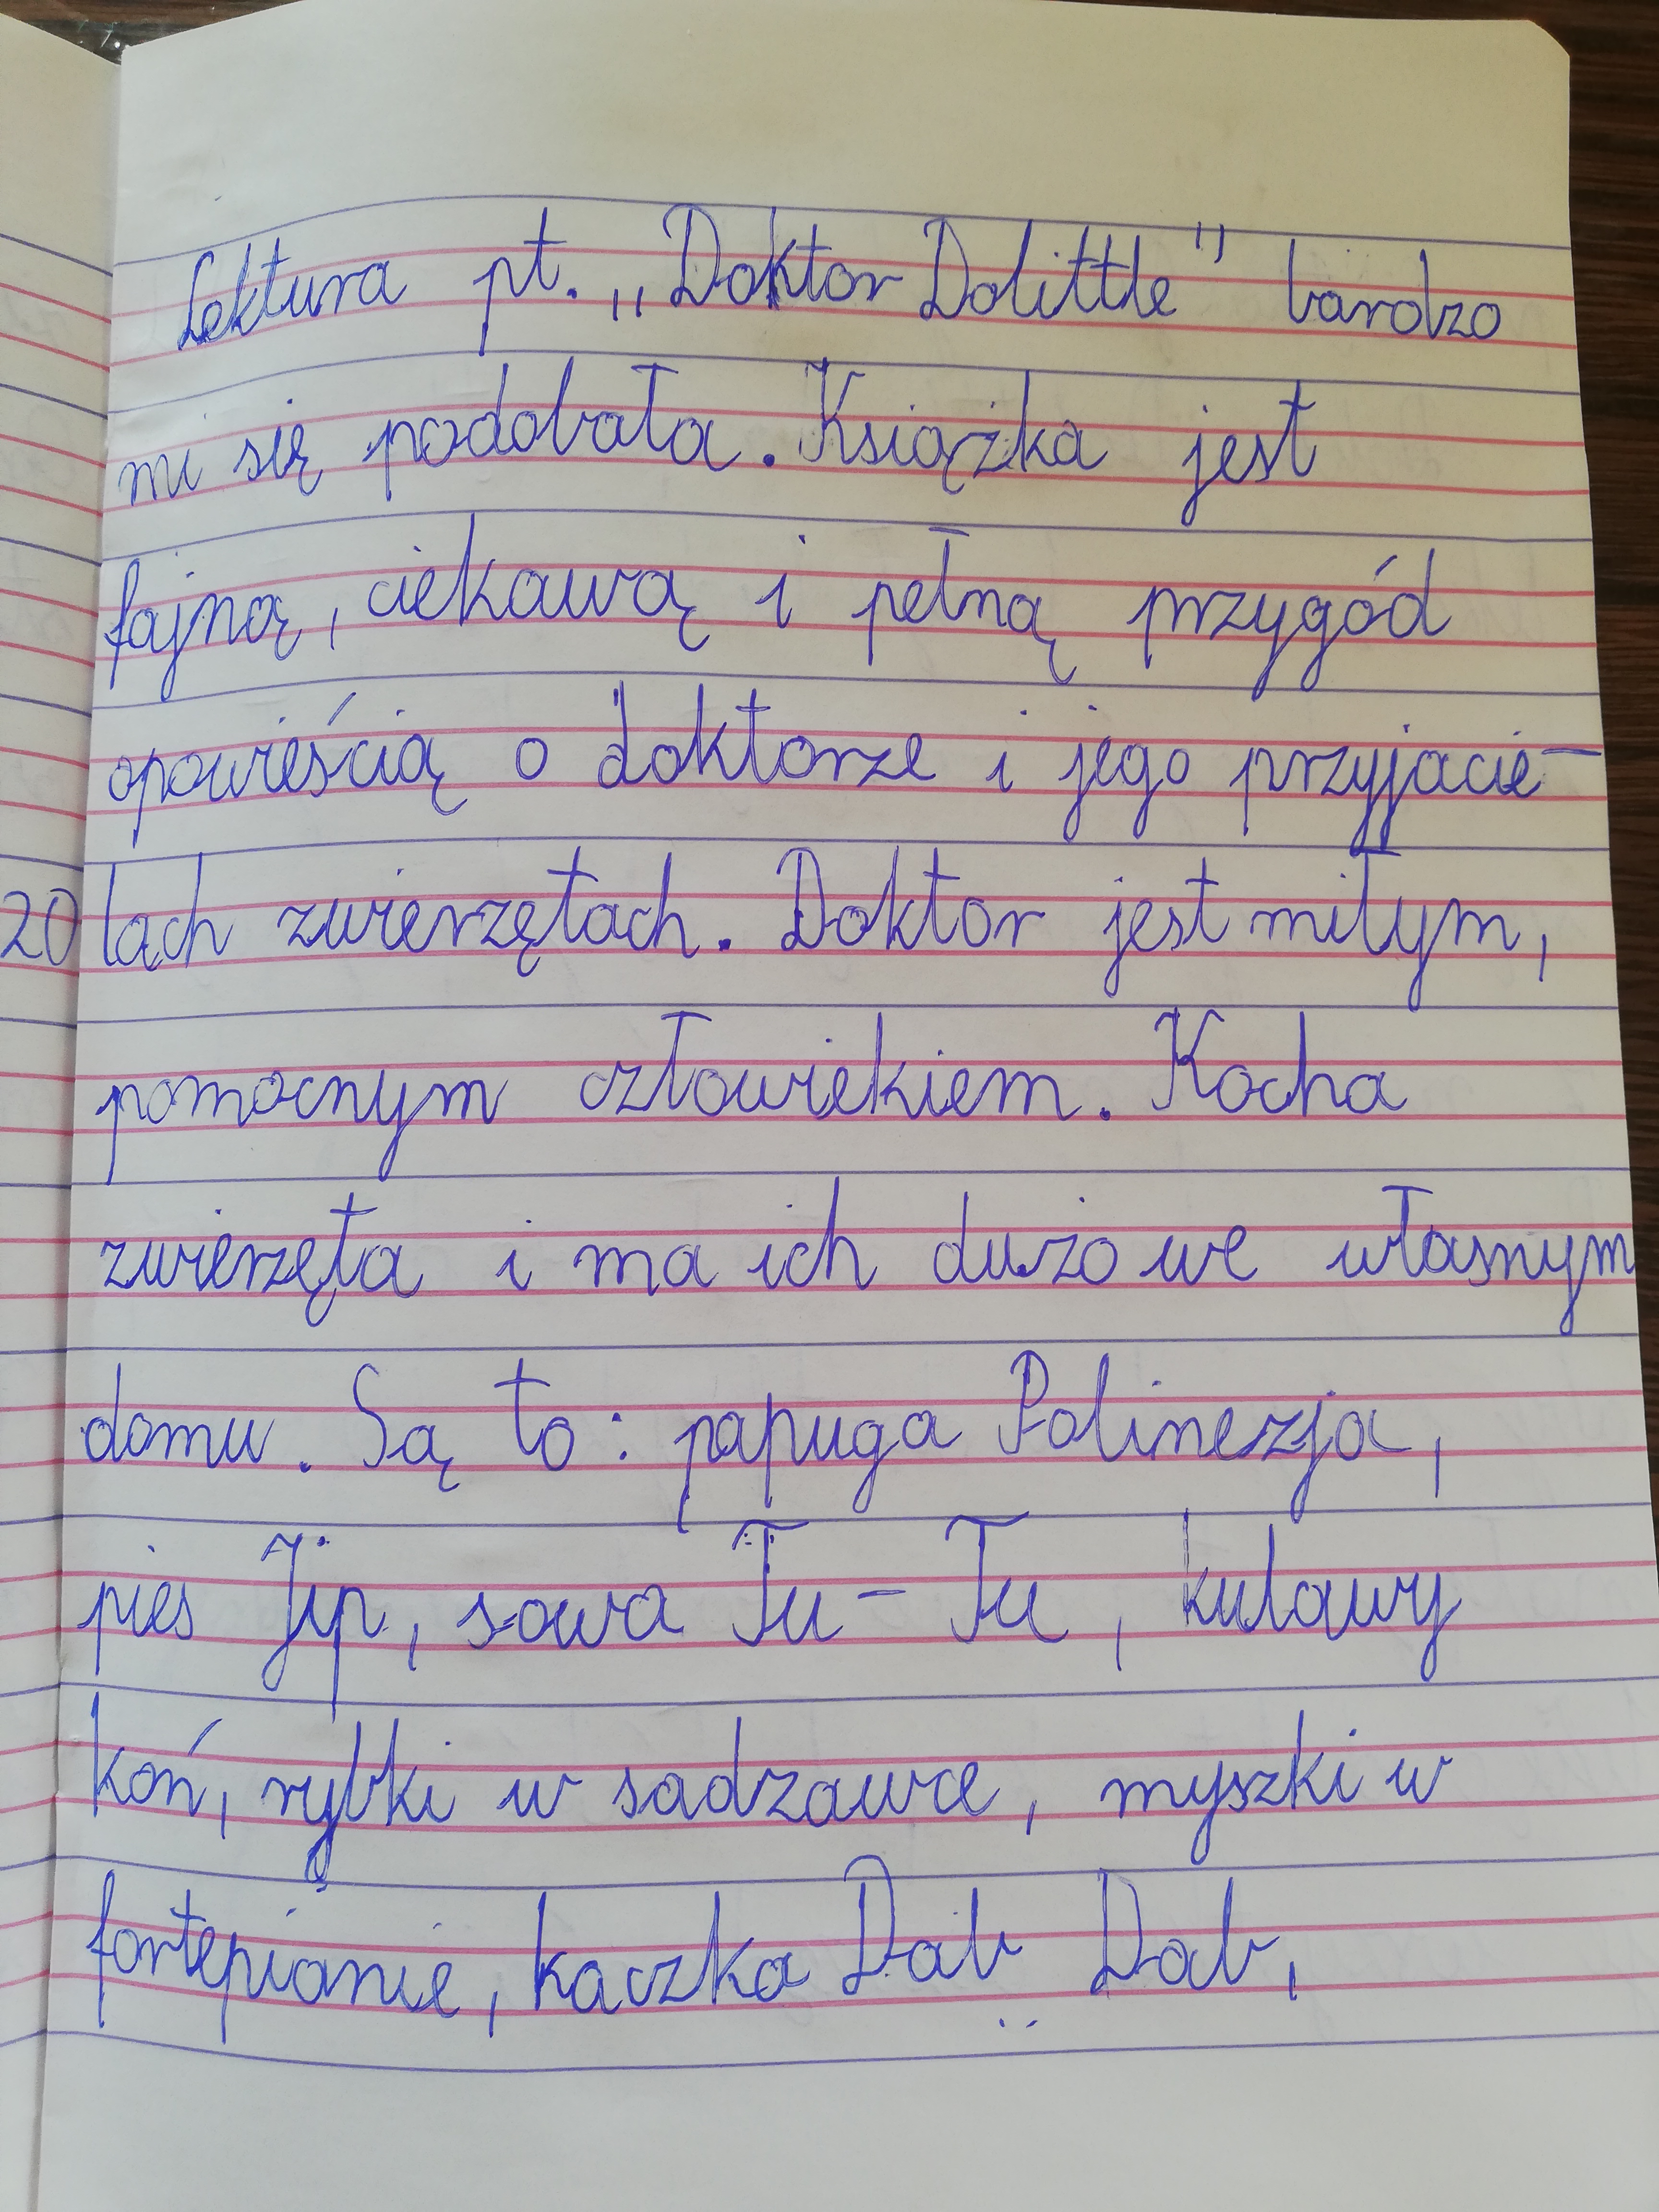 Lektura pt. „Doktor Dolittle" bardzo
mi się podobała. Książka jest
fajną, ciekawą i pełną przygód
opowieścią o doktorze i jego przyjacie-
20 lach zwierzętach. Doktor jest miłym,
pomocnym człowiekiem. Kocha
zwierzęta i ma ich dużo we własnym
domu. Są to: papuga Polinezja,
pies Jip, sowa Tu-Tu, kulawy
koń, rybki w sadzawce, myszki w
fortepianie, kaczka Dab Dab,